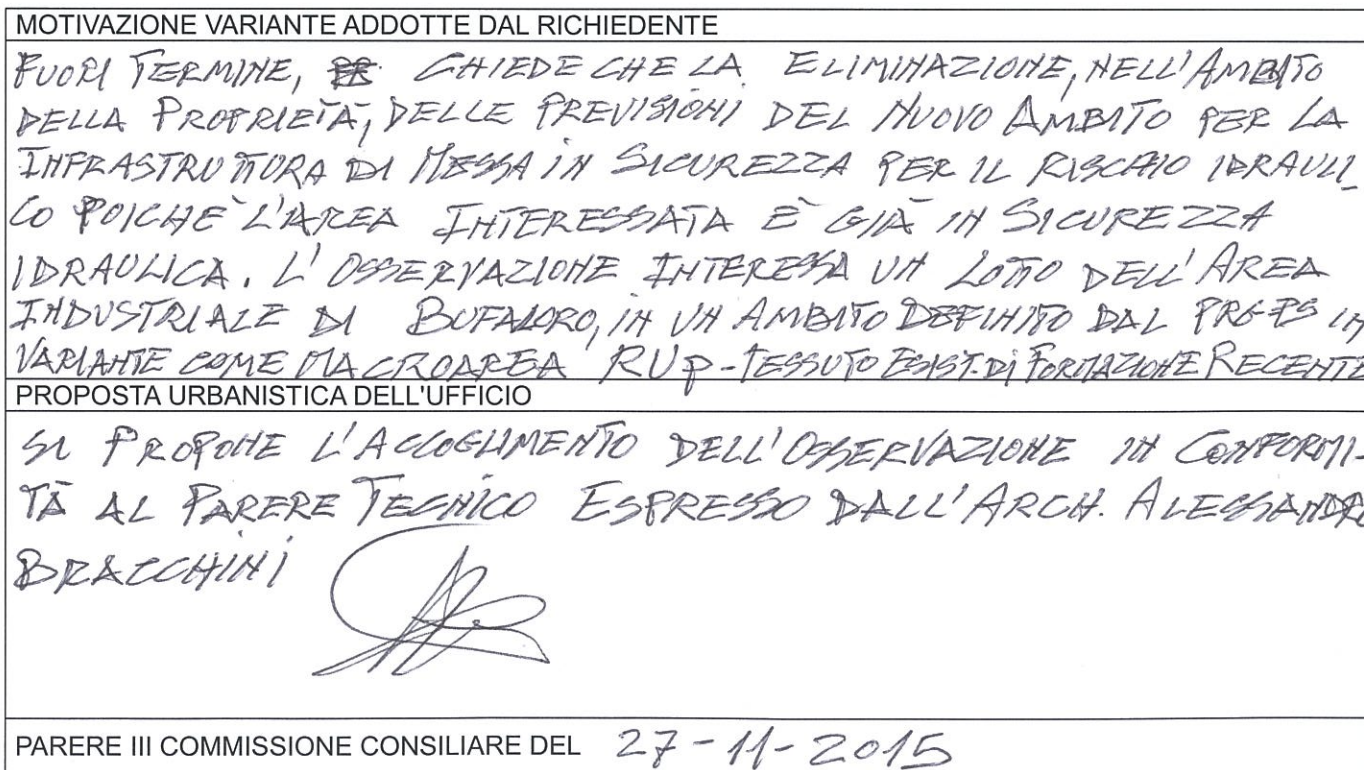 MOTIVAZIONE VARIANTE ADDOTTE DAL RICHIEDENTE
FUORI TERMINE, CHIEDE CHE LA ELIMINAZIONE, NELL'AMBITO
DELLA PROPRIETÀ, DELLE PREVISIONI DEL NUOVO AMBITO PER LA
INFRASTRUTTURA DI MESSA IN SICUREZZA PER IL RISCHIO IDRAULI_
CO POICHÈ L'AREA INTERESSATA È GIÀ IN SICUREZZA
IDRAULICA. L'OSSERVAZIONE INTERESSA UN LOTTO DELL'AREA
INDUSTRIALE DI BUFALORO, IN UN AMBITO DEFINITO DAL PRG-PS IN
VARIANTE COME MACROAREA RUp-TESSUTO ESIST. DI FORMAZIONE RECENTE
PROPOSTA URBANISTICA DELL'UFFICIO
SI PROPONE L'ACCOGLIMENTO DELL'OSSERVAZIONE IN CONFORMI-
TÀ AL PARERE TECNICO ESPRESSO DALL'ARCH. ALESSANDRO
BRACCHINI
PARERE III COMMISSIONE CONSILIARE DEL 27-11-2015